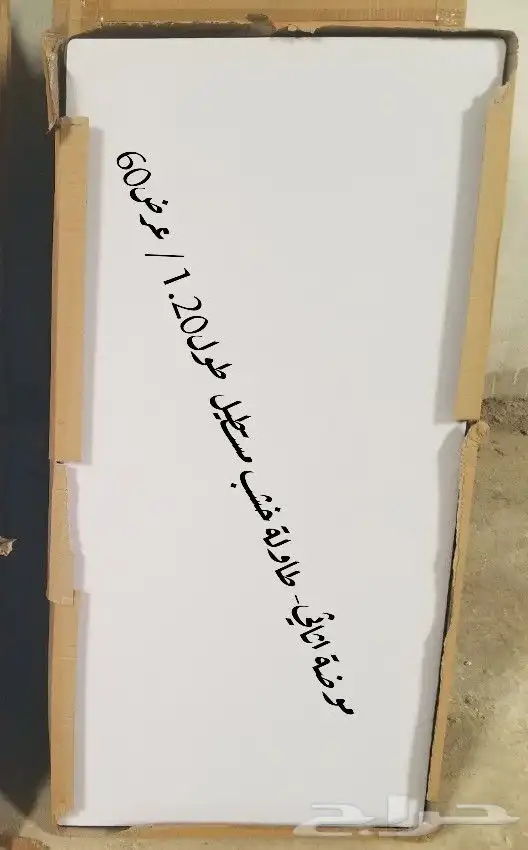 موضة اثاثي- طاولة خشب مستطيل طول1.20/ عرض60
حراج